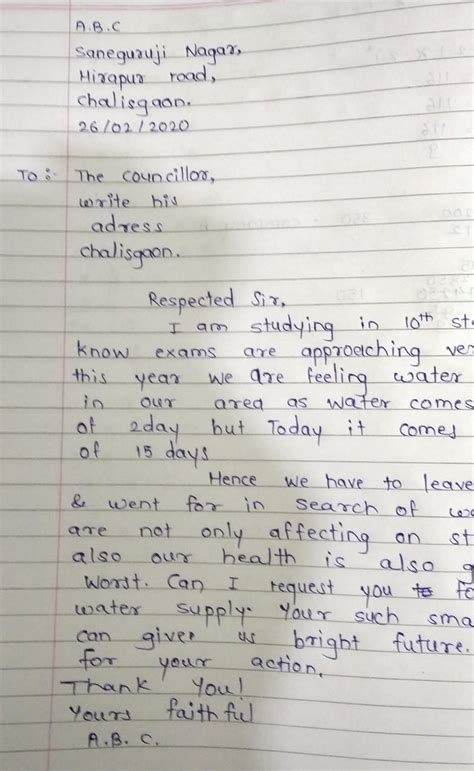 A.B.C
Saneguruji Nagar,
Hirapur road,
Chalisgaon.
26/02/2020
To :- The councillor,
write his
adress
chalisgaon.
Respected Sir,
I am studying in 10th st
know exams are approaching ver
this year we are feeling water
in our area as water comes
of 2day but Today it comes
of 15 days
Hence we have to leave
& went for in search of
are not only affecting on st
also our health is also g
worst. Can I request you fo
water supply. Your such sma
can given us bright future.
for your action.
Thank You!
Yours faithful
A.B.C.